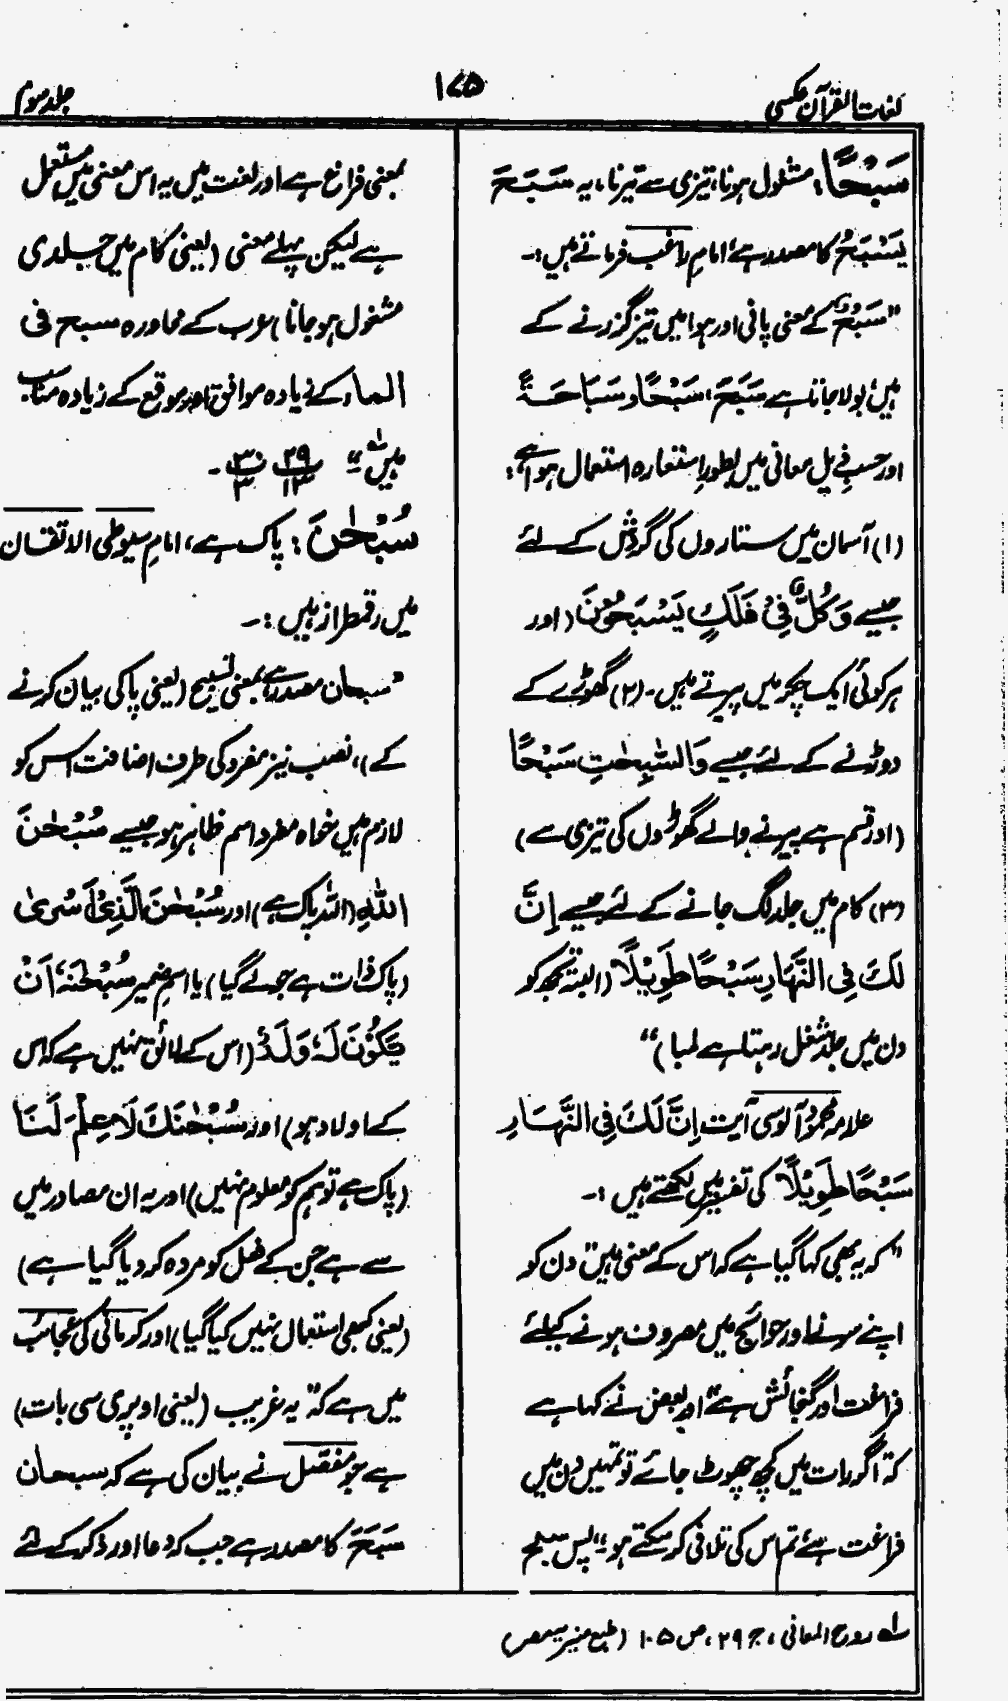 لغات القرآن عکسی
۱۷۵
جلد سوم
سَبْحًا: مشغول ہونا، تیزی سے تیرنا، یہ سَبَحَ
یَسْبَحُ کا مصدر ہے، امام راغب فرماتے ہیں:۔
"سَبْحٌ کے معنی پانی اور ہوا میں تیز گزرنے کے
ہیں، بولا جاتا ہے سَبَحَ، سَبْحًا و سَبَاحَۃً
اور حسبِ ذیل معانی میں بطور استعارہ استعمال ہوا ہے:
(۱) آسمان میں ستاروں کی گردش کے لئے
جیسے وَکُلٌّ فِیْ فَلَکٍ یَّسْبَحُوْنَ (اور
ہر کوئی ایک چکر میں پیرتے ہیں۔ (۲) گھوڑے کے
دوڑنے کے لئے جیسے وَالسّٰبِحٰتِ سَبْحًا
(اور قسم ہے پیرنے والے گھوڑوں کی تیزی سے)
(۳) کام میں جلد لگ جانے کے لئے جیسے اِنَّ
لَکَ فِی النَّهَارِ سَبْحًا طَوِیْلًا (البتہ تجھ کو
دن میں جلد شغل رہتا ہے لمبا)"
علامہ محمود آلوسی آیت اِنَّ لَکَ فِی النَّهَارِ
سَبْحًا طَوِیْلًا کی تفسیر میں لکھتے ہیں:۔
"کہ یہ بھی کہا گیا ہے کہ اس کے معنی ہیں" دن کو
اپنے سونے اور حوائج میں مصروف ہونے کیلئے
فراغت اور گنجائش ہے" اور بعض نے کہا ہے
کہ "اگر رات میں کچھ چھوٹ جائے تو تمہیں دن میں
فراغت ہے، تم اس کی تلافی کر سکتے ہو"۔ پس سبح
بمعنی فراغ ہے اور لغت میں یہ اس معنی میں مستعمل
ہے لیکن پہلے معنی (یعنی کام میں جلدی
مشغول ہو جانا) عرب کے محاورہ سبح فی
الماء کے زیادہ موافق اور موقع کے زیادہ مناسب
ہیں" لہ ۲۹/۱۳ ۳۰/۳۔
سُبْحٰنَ: پاک ہے، امام سیوطی الاتقان
میں رقمطراز ہیں:۔
"سبحان مصدر ہے بمعنی تسبیح (یعنی پاکی بیان کرنے
کے)، نصب نیز مفرد کی طرف اضافت اس کو
لازم ہیں خواہ مفرد اسم ظاہر ہو جیسے سُبْحٰنَ
اللّٰهِ (اللہ پاک ہے) اور سُبْحٰنَ الَّذِیْ اَسْرٰی
(پاک ذات ہے جو لے گیا) یا اسم ضمیر سُبْحٰنَهٗ اَنْ
یَّکُوْنَ لَهٗ وَلَدٌ (اس کے لائق نہیں ہے کہ اس
کے اولاد ہو) اور سُبْحٰنَکَ لَا عِلْمَ لَنَا
(پاک ہے تو ہم کو معلوم نہیں) اور یہ ان مصادر میں
سے ہے جن کے فعل کو مردہ کر دیا گیا ہے)
(یعنی کبھی استعمال نہیں کیا گیا) اور کرمانی کی عجائب
میں ہے کہ "یہ غریب (یعنی اوپری سی بات)
ہے جو مفضل نے بیان کی ہے کہ سبحان
سَبَحَ کا مصدر ہے جب کہ دعا اور ذکر کے لئے
لہ روح المعانی، ج ۲۹، ص ۱۰۵ (طبع منیریہ مصر)